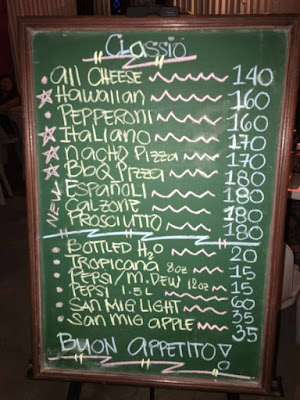 CLASSIC
ALL CHEESE 140
HAWAIIAN 160
PEPPERONI 160
ITALIANO 170
NACHO PIZZA 170
BBQ PIZZA 180
NEW ESPAÑOLI 180
CALZONE 180
PROSCIUTTO 180
BOTTLED H2O 20
TROPICANA 8oz 15
PEPSI / M. DEW 12oz 15
PEPSI 1.5L 60
SAN MIG LIGHT 35
SAN MIG APPLE 35
BUON APPETITO!